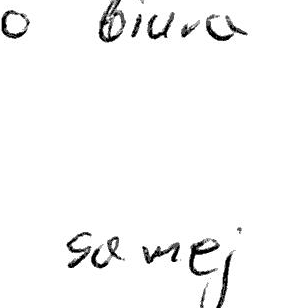 o biura
samej